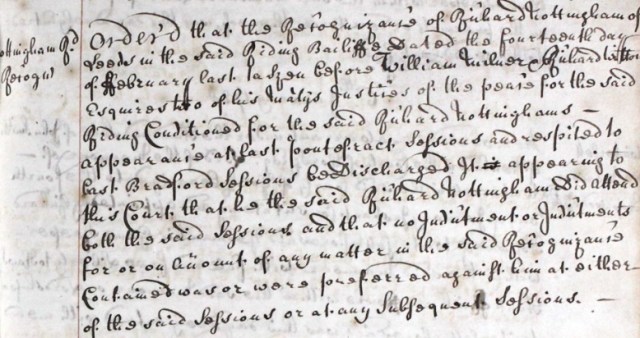 Ordered that the Recognizance of Richard Nottingham of
ottingham Rd
Leeds in the said Riding Bailiffe dated the fourteenth day
Recogn
of February last taken before William Milner & Richard
Esquires two of his Ma'tys Justices of the peace for the said
Riding Conditioned for the said Richard Nottinghams —
appearance at last Pontefract Sessions and respited to
last Bradford Sessions bee discharged It appearing to
this Court that he the said Richard Nottingham did attend
both the said Sessions and that no Indictment or Indictments
for or on Account of any matter in the said Recognizance
Contained was or were preferred against him at either
of the said Sessions or at any Subsequent Sessions. —